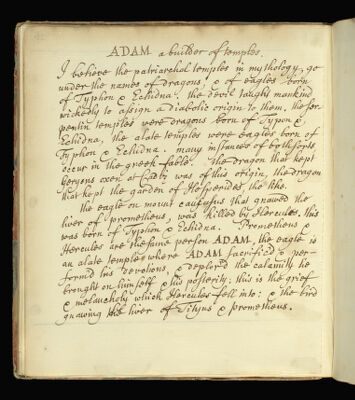 ADAM a builder of temples.
I believe the patriarchal temples in mythology, go
under the names of dragons, & of eagles born
of Typhon & Echidna. the devil taught mankind
wickedly to assign a diabolic origin to them. the ser-
pentin temples were dragons born of Typon &
Echidna, the alate temples were eagles born of
Typhon & Echidna. many instances of both sorts
occur in the greek fable. the dragon that kept
Geryons oxen at Cadiz was of this origin, the dragon
that kept the garden of Hesperides the like.
the eagle on mount caucasus that gnawed the
liver of prometheus, was killed by Hercules, this
was born of Typhon & Echidna. Prometheus &
Hercules are the same person ADAM, the eagle is
an alate temple where ADAM sacrificed & per-
formd his devotions, & deplor'd the calamity he
brought on himself & his posterity; this is the grief
& melancholy which Hercules fell into: & the bird
gnawing the liver of Tityus & prometheus.